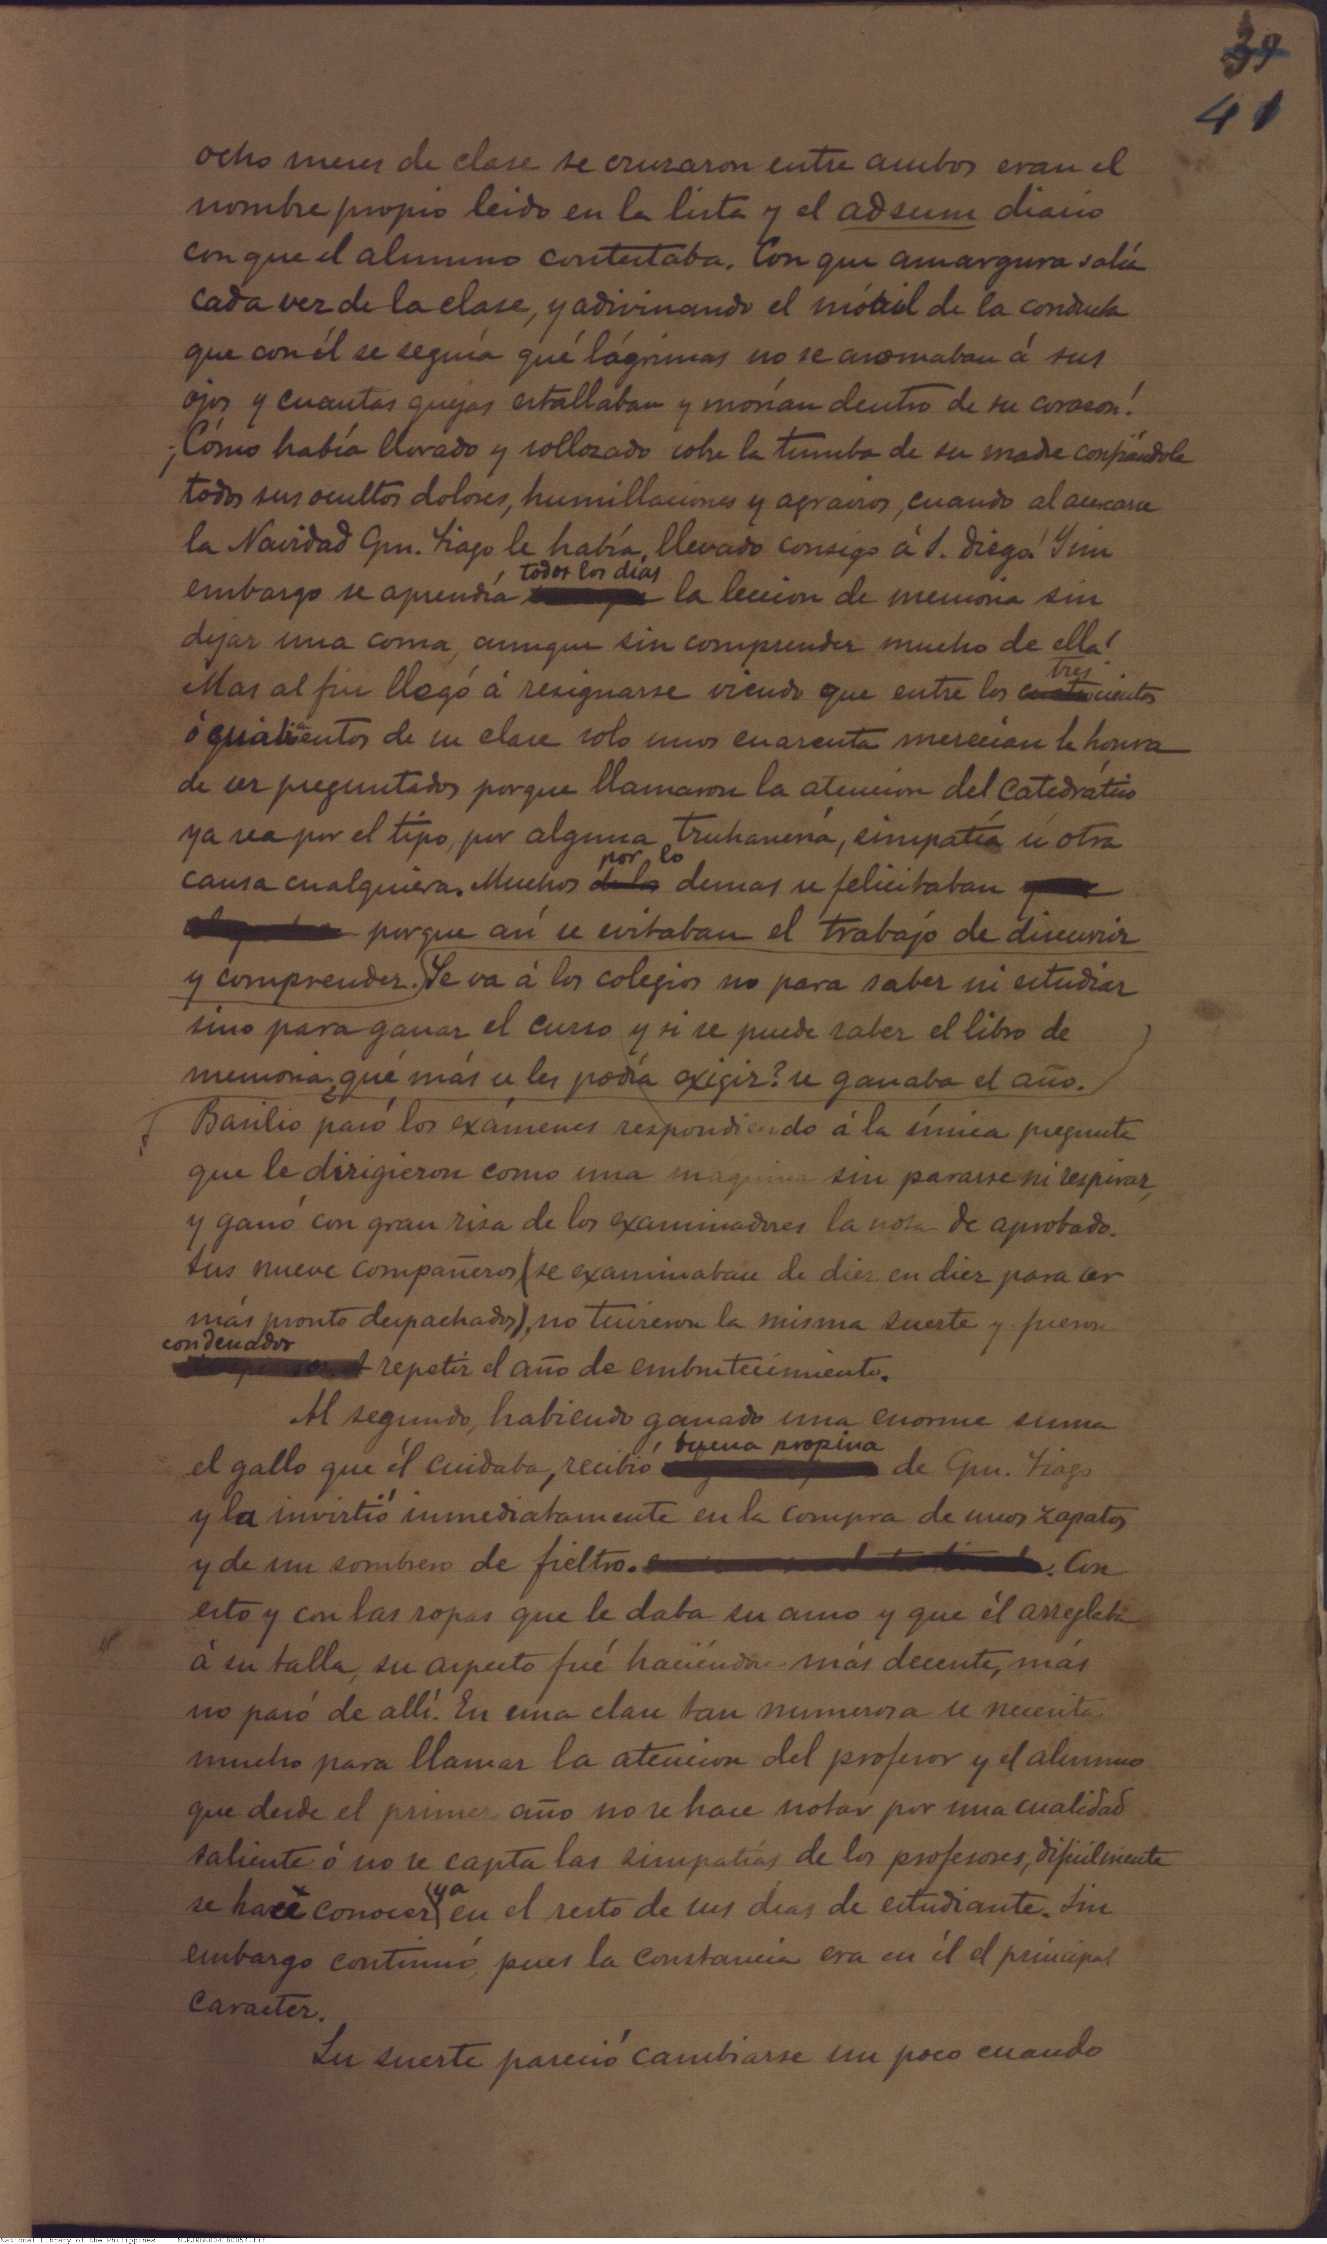 39
41
ocho meses de clase se cruzaron entre ambos eran el
nombre propio leido en la lista y el adsum diario
con que el alumno contestaba. Con que amargura salía
cada vez de la clase, y adivinando el móvil de la conducta
que con él se seguía qué lágrimas no se asomaban á sus
ojos y cuantas quejas estallaban y morían dentro de su corazon!
¡Cómo había llorado y sollozado sobre la tumba de su madre confiándole
todos sus ocultos dolores, humillaciones y agravios, cuando al acercarse
la Navidad Cpn. Tiago le había llevado consigo á S. Diego! Y sin
todos los días
embargo se aprendía la leccion de memoria sin
dejar una coma, aunque sin comprender mucho de ella!
tres
Mas al fin llegó á resignarse viendo que entre los cuatrocientos
ó cuatrocientos de su clase solo unos cuarenta merecían la honra
de ser preguntados porque llamaron la atencion del catedrático
ya sea por el tipo, por alguna truhanería, simpatía ú otra
por lo
causa cualquiera. Muchos de los demas se felicitaban
porque así se evitaban el trabajo de discurrir
y comprender. Se va á los colegios no para saber ni estudiar
sino para ganar el curso y si se puede saber el libro de
memoria ¿qué más se les podía exigir? se ganaba el año.
Basilio pasó los exámenes respondiendo á la única pregunta
que le dirigieron como una maquina sin pararse ni respirar,
y ganó con gran risa de los examinadores la nota de aprobado.
Sus nueve compañeros (se examinaban de diez en diez para ser
más pronto despachados), no tuvieron la misma suerte y fueron
condenados
á repetir el año de embrutecimiento.
Al segundo, habiendo ganado una enorme suma
buena propina
el gallo que él cuidaba, recibió de Cpn. Tiago
y la invirtió inmediatamente en la compra de unos zapatos
y de un sombrero de fieltro. Con
esto y con las ropas que le daba su amo y que él arreglaba
á su talla, su aspecto fué haciéndose más decente, más
no pasó de allí. En una clase tan numerosa se necesita
mucho para llamar la atencion del profesor y el alumno
que desde el primer año no se hace notar por una cualidad
saliente ó no se capta las simpatías de los profesores, dificilmente
ya
se hace conocer en el resto de sus dias de estudiante. Sin
embargo continuó, pues la constancia era en él el principal
caracter.
Su suerte pareció cambiarse un poco cuando
National Library of the Philippines